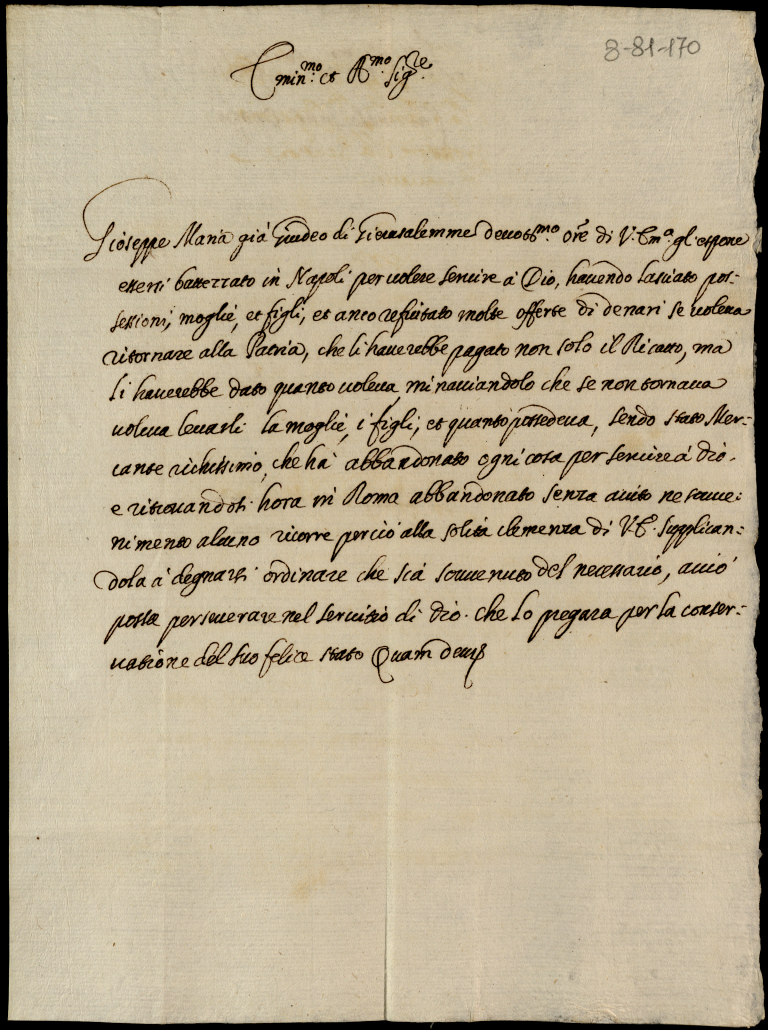 8-81-170
Emin.mo et R.mo Sig.re
Gioseppe Maria già Giudeo di Gierusalemme devotiss.mo Ore di V. Em.a gl'espone
essersi battezzato in Napoli per volere servire à Dio, havendo lasciato pos-
sessioni, moglie, et figli, et anco refiutato molte offerte di denari se voleva
ritornare alla Patria, che li haverebbe pagato non solo il Ricatto, ma
li haverebbe dato quanto voleva, minacciandolo che se non tornava
voleva levarli la moglie, i figli, et quanto possedeva, sendo stato Mer-
cante richissimo, che hà abbandonato ogni cosa per servire à Dio.
e ritrovandosi hora in Roma abbandonato senza aiuto ne souve:
nimento alcuno ricorre perciò alla solita clemenza di V. E. supplican:
dola à degnarsi ordinare che sia souvenuto del necessario, acciò
possa perseverare nel servitio di Dio. che lo pregara per la conser:
vatione del suo felice stato Quam Deus